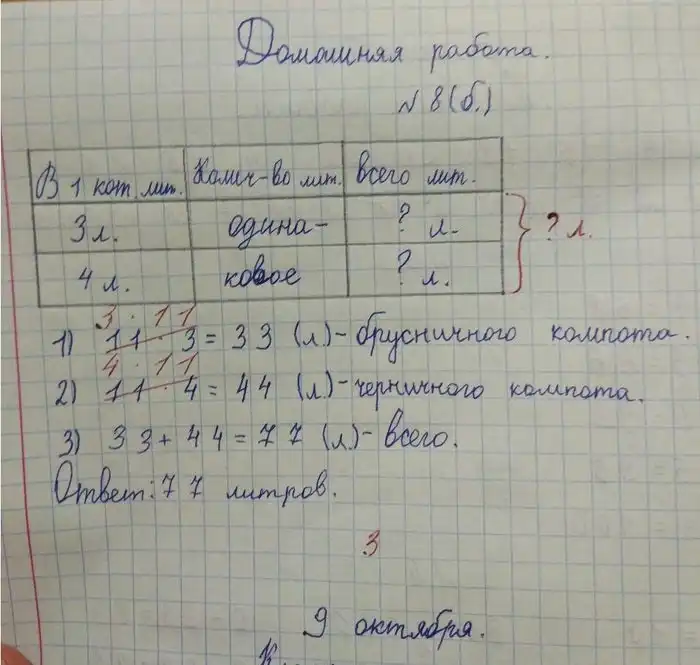 Домашняя работа.
№ 8(б.)
В 1 кот. лит. Колич-во лит. всего лит.
3 л. одина- ? л.
4 л. ковое ? л.
? л.
3 · 11
1) 11 · 3 = 33 (л) - брусничного компота.
4 · 11
2) 11 · 4 = 44 (л.) - черничного компота.
3) 33 + 44 = 77 (л) - всего.
Ответ: 77 литров.
3
9 октября.